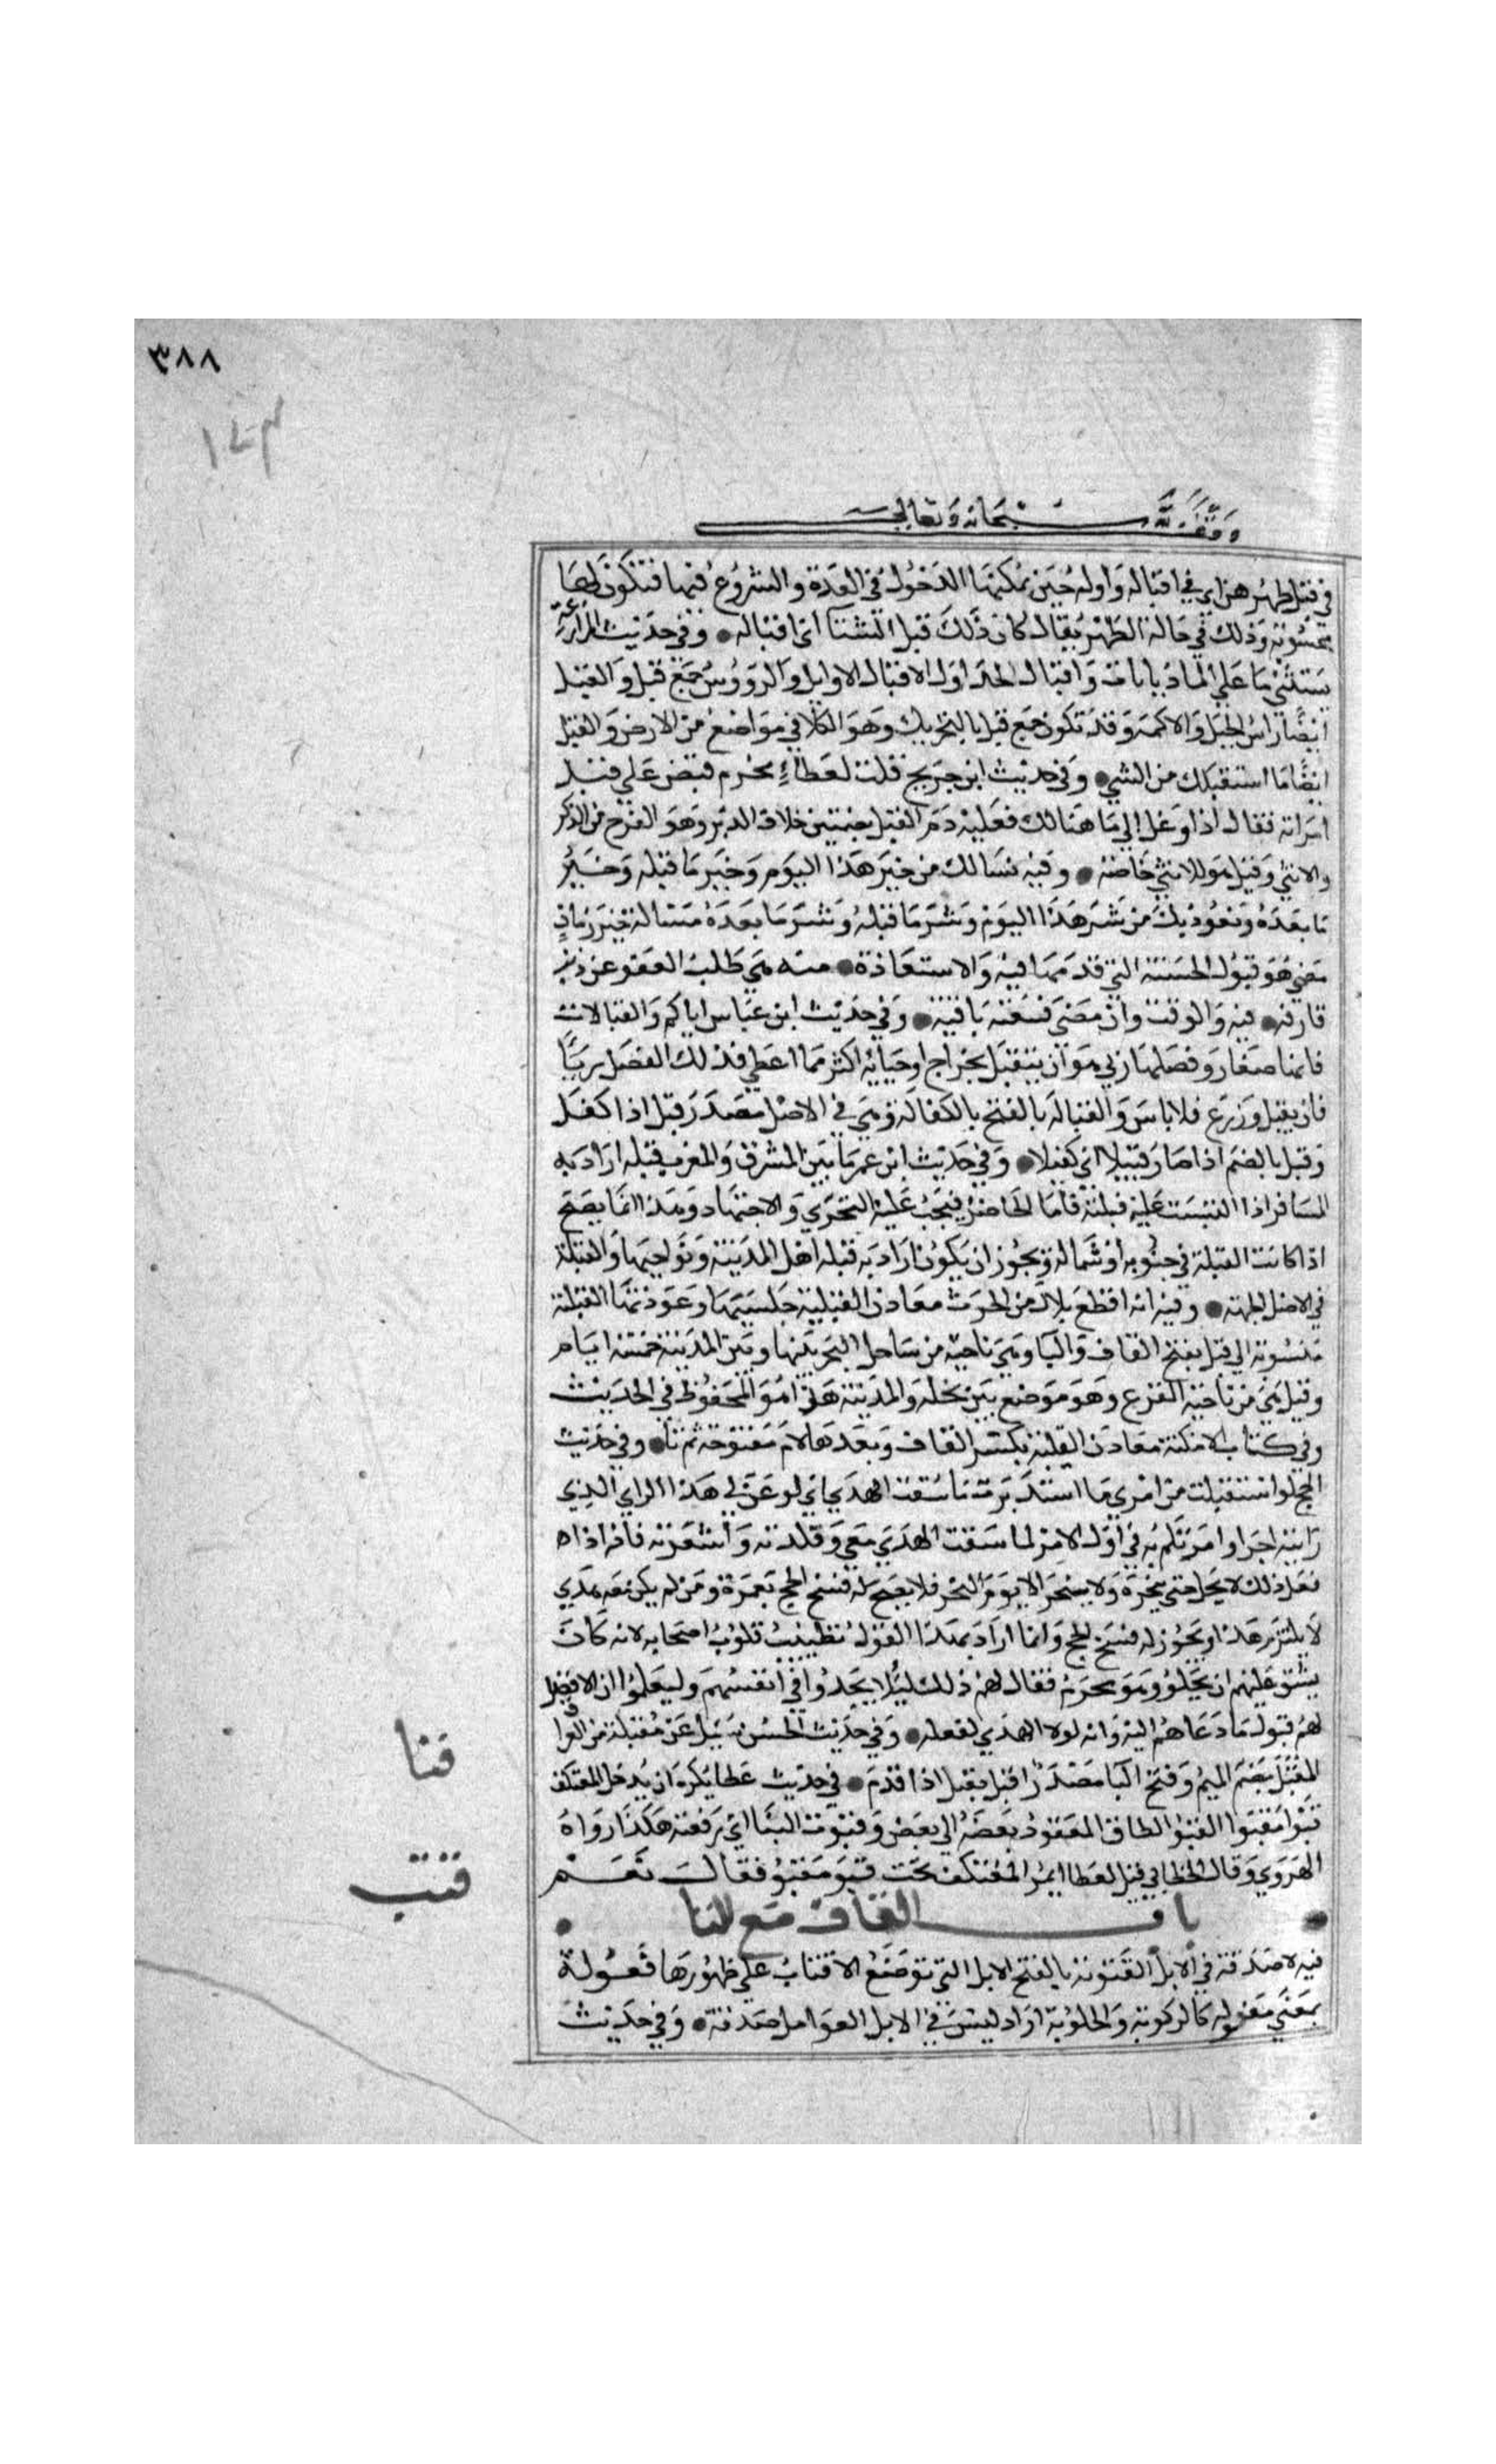 ٣٨٨
وقف لله سبحانه وتعالى
في قبل طهرهن اي في اقباله واوله حين يمكنها الدخول في العدة والشروع فيها فتكون لها
محسوبة وذلك في حالة الطهر يقال كان ذلك قبل الشتا اي اقباله • وفي حديث المزارعة
يستثني ما علي الماذيانات واقبال الجداول الاقبال الاوايل والرووس جمع قبل والقبل
ايضا راس الجبل والاكمة وقد تكون جمع قبل بالتحريك وهو الكلا في مواضع من الارض والقبل
ايضا ما استقبلك من الشي • وفي حديث ابن جريج قلت لعطاء محرم قبض علي قبل
امراته فقال اذا وغل الي ما هنالك فعليه دم القبل بضمتين خلاف الدبر وهو الفرج من الذكر
والانثي وقيل هو للانثي خاصة • وفيه نسالك من خير هذا اليوم وخير ما قبله وخير
ما بعده ونعوذ بك من شر هذا اليوم وشر ما قبله وشر ما بعده مسالة خير زمان
مضي هو قبول الحسنة التي قدمها فيه والاستعاذة • منه هي طلب العفو عن ذنب
قارفه • فيه والوقت وان مضي فتبعته باقية • وفي حديث ابن عباس اياكم والقبالات
فانها صغار وفضلها ربي هو ان يتقبل بخراج او جباية اكثر مما اعطي فذلك الفضل ربا
فان يقبل وزرع فلا باس والقبالة بالفتح بالكفالة وهي في الاصل مصدر قبل اذا كفل
وقبل بالضم اذا صار قبيلا اي كفيلا • وفي حديث ابن عمر ما بين المشرق والمغرب قبلة اراد به
المسافر اذا التبست عليه قبلته فاما الحاضر فيجب عليه التحري والاجتهاد وهذا انما يصح
اذا كانت القبلة في جنوبه او شماله ويجوز ان يكون اراد به قبلة اهل المدينة ونواحيها والقبلة
في الاصل الجهة • وفيه انه اقطع بلال من الحرث معادن القبلية جلسيها وغوذيها القبلية
منسوبة الي قبل بفتح القاف والبا وهي ناحية من ساحل البحر بينها وبين المدينة خمسة ايام
وقيل هي من ناحية الفرع وهو موضع بين نخلة والمدينة هذا هو المحفوظ في الحديث
وفي كتاب الامكنة معادن القلبة بكسر القاف وبعدها لام مفتوحة ثم تا • وفي حديث
الحج لو استقبلت من امري ما استدبرت ما سقت الهدي اي لو عن لي هذا الراي الذي
رايته اجرا وامرتكم به في اول الامر لما سقت الهدي معي وقلدته واشعرته فانه اذا
فعل ذلك لا يحل حتي ينحره ولا ينحر الا يوم النحر فلا يصح له فسخ الحج بعمرة ومن لم يكن معه هدي
لا يلتزم هذا ويجوز له فسخ الحج وانما اراد بهذا القول تطييب قلوب اصحابه لانه كان
يشق عليهم ان يحلوا وهو محرم فقال لهم ذلك ليلا يجدوا في انفسهم وليعلموا ان الافضل
لهم قبول ما دعاهم اليه وانه لولا الهدي لفعله • وفي حديث الحسن سيل عن مقبلة من العراق
المقبل بضم الميم وفتح البا مصدر اقبل يقبل اذا قدم • في حديث عطا يكره ان يدخل المعتكف
قبوا مقبوا القبو الطاق المعقود بعضه الي بعض وقبوت البنا اي رفعته هكذا رواه
الهروي وقال الخطابي قيل لعطا ايمر المعتكف تحت قبو مقبو فقال نعم
باب القاف مع التا
فيه لا صدقة في الابل القتوبة بالفتح الابل التي توضع الاقتاب علي ظهورها فعولة
بمعني مفعولة كالركوبة والحلوبة اراد ليس في الابل العوامل صدقة • وفي حديث
قبا
قتب